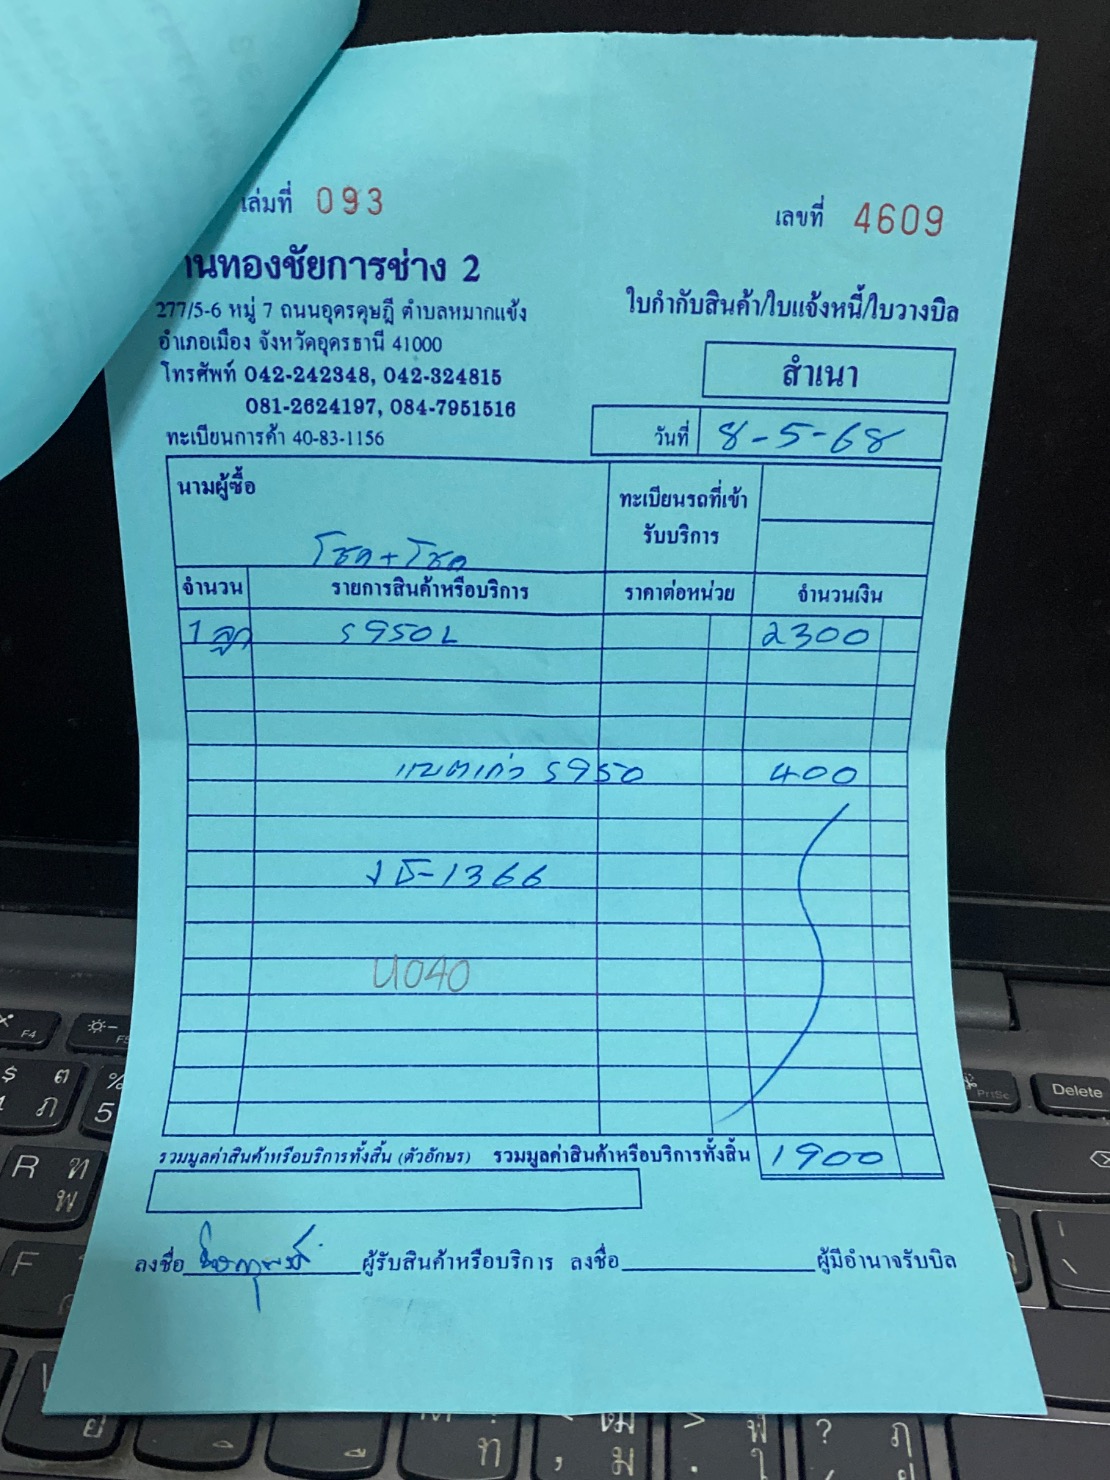 เล่มที่ 093
เลขที่ 4609
านทองชัยการช่าง 2
277/5-6 หมู่ 7 ถนนอุดรดุษฎี ตำบลหมากแข้ง
อำเภอเมือง จังหวัดอุดรธานี 41000
โทรศัพท์ 042-242348, 042-324815
081-2624197, 084-7951516
ทะเบียนการค้า 40-83-1156
ใบกำกับสินค้า/ใบแจ้งหนี้/ใบวางบิล
สำเนา
วันที่ 8-5-68
นามผู้ซื้อ
โชค+โชค
ทะเบียนรถที่เข้า
รับบริการ
จำนวน รายการสินค้าหรือบริการ ราคาต่อหน่วย จำนวนเงิน
1 ลูก S950L 2300
แบตเก่า S950 400
-1366
U040
รวมมูลค่าสินค้าหรือบริการทั้งสิ้น (ตัวอักษร) รวมมูลค่าสินค้าหรือบริการทั้งสิ้น 1900
ลงชื่อ ผู้รับสินค้าหรือบริการ ลงชื่อ ผู้มีอำนาจรับบิล
F4
$ ต
4 ภ
%
5
R ฑ
พ
F
PrtSc
Delete